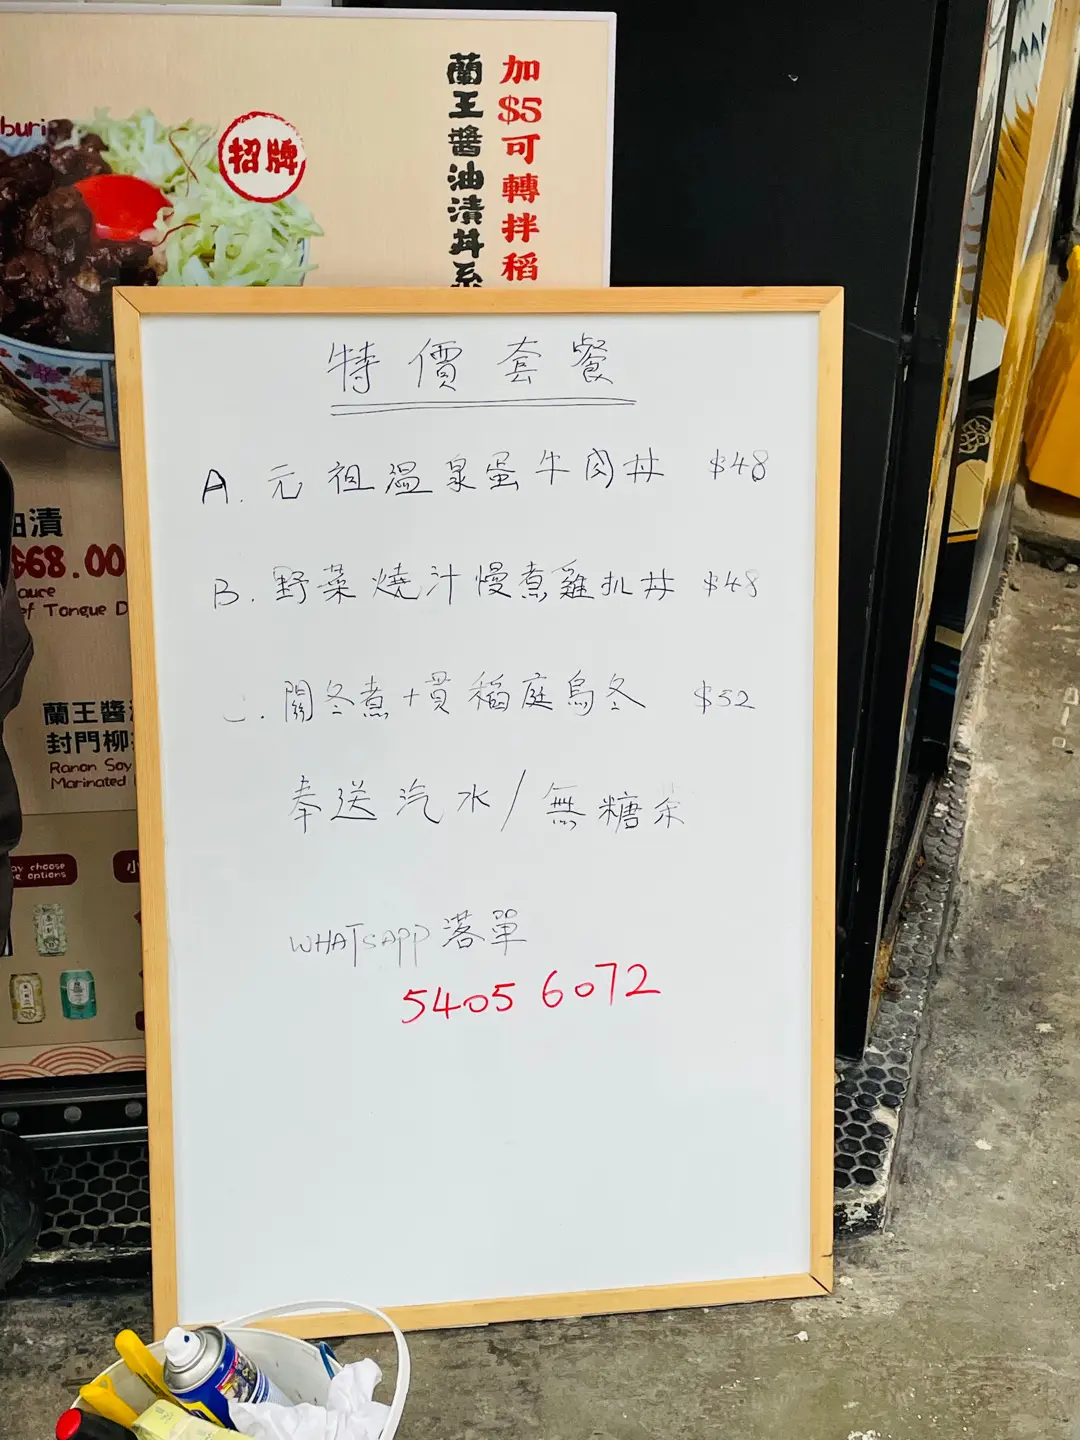 buri
招牌
加$5可轉拌稻
蘭王醬油漬丼系
特價套餐
A. 元祖溫泉蛋牛肉丼 $48
B. 野菜燒汁慢煮雞扒丼 $48
C. 關冬煮+貫稻庭烏冬 $52
奉送汽水/無糖茶
WHATSAPP 落單
5405 6072
油漬
$68.00
auce
ef Tongue D
蘭王醬
封門柳
Ranon Soy
Marinated
ay choose
e options
小